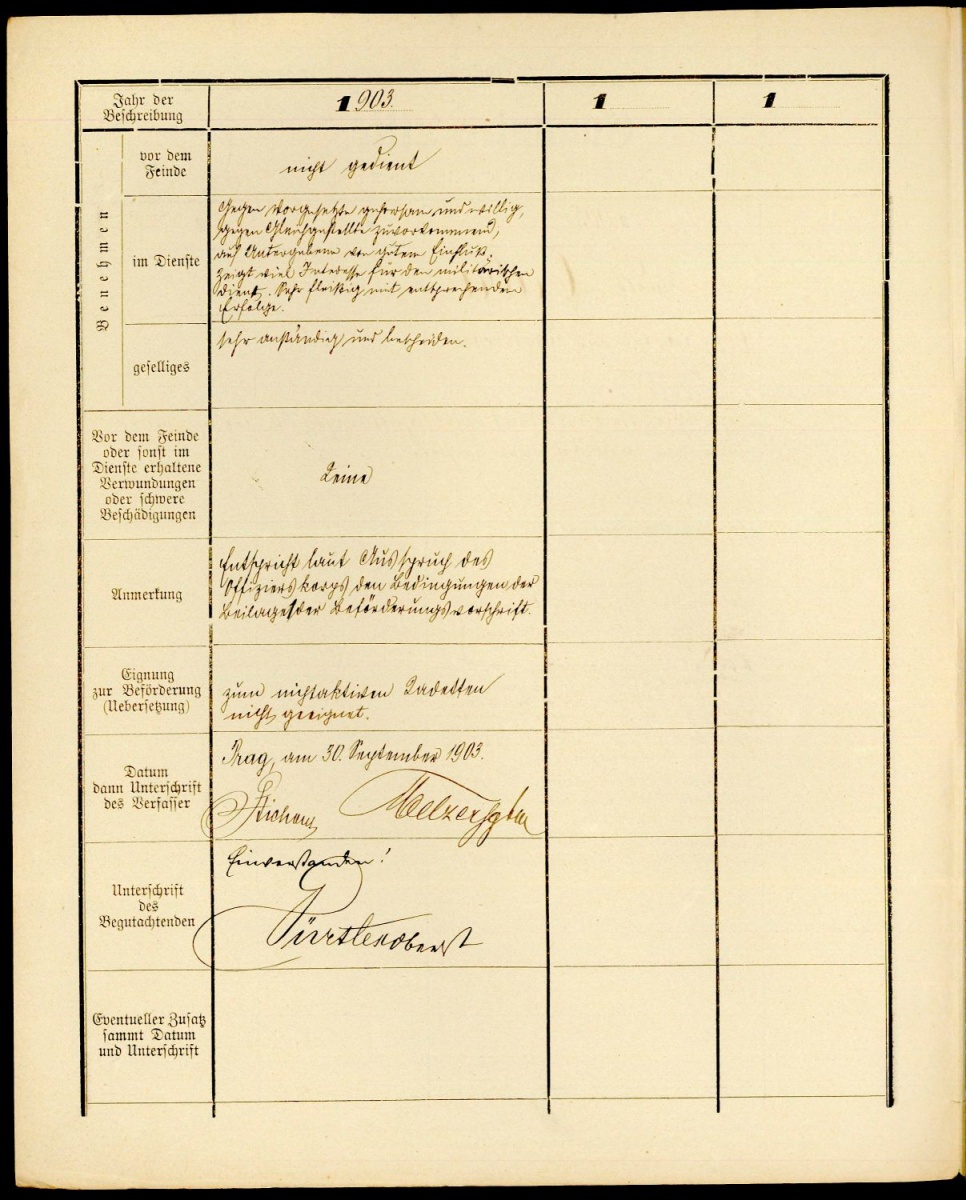 Jahr der
Beschreibung
1903.
1
1
Benehmen
vor dem
Feinde
nicht gedient
im Dienste
Gegen Vorgesetzte gehorsam und willig,
gegen Gleichgestellte zuvorkommend,
auf Untergebene von gutem Einfluß.
Zeigt viel Interesse für den militärischen
Dienst. Sehr fleißig mit entsprechendem
Erfolge.
geselliges
sehr anständig und bescheiden.
Vor dem Feinde
oder sonst im
Dienste erhaltene
Verwundungen
oder schwere
Beschädigungen
Keine
Anmerkung
Entspricht laut Ausspruch des
Offizierskorps den Bedingungen der
Beilage der Beförderungsvorschrift.
Eignung
zur Beförderung
(Uebersetzung)
zum nichtaktiven Kadetten
nicht geeignet.
Datum
dann Unterschrift
des Verfasser
Prag, am 30. September 1903.
Melzer
Unterschrift
des
Begutachtenden
Einverstanden!
Oberst
Eventueller Zusatz
sammt Datum
und Unterschrift